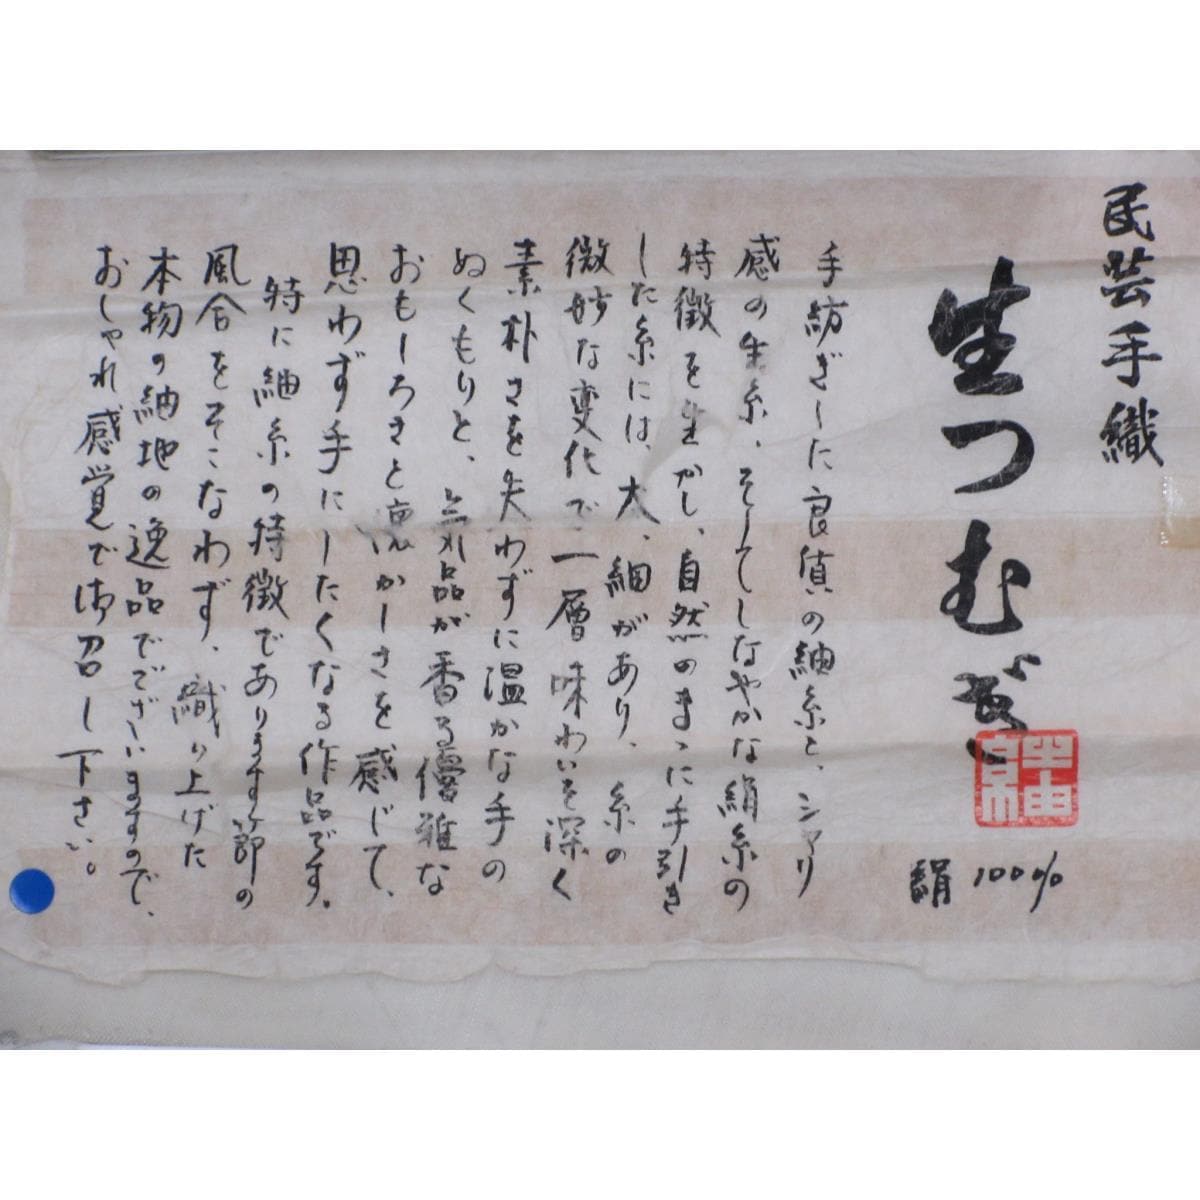 民芸手織
生つむぎ
絹 100%
手紡ぎした良質の紬糸と、シャリ
感の生糸、そしてしなやかな絹糸の
特徴を生かし、自然のまゝに手引き
した糸には、太、細があり、糸の
微妙な変化で一層味わいを深く
素朴さを失わずに温かな手の
ぬくもりと、気品が香る優雅な
おもしろさと懐かしさを感じて、
思わず手にしたくなる作品です。
特に紬糸の特徴であります節の
風合をそこなわず、織り上げた
本物の紬地の逸品でございますので、
おしゃれ感覚で御召し下さい。